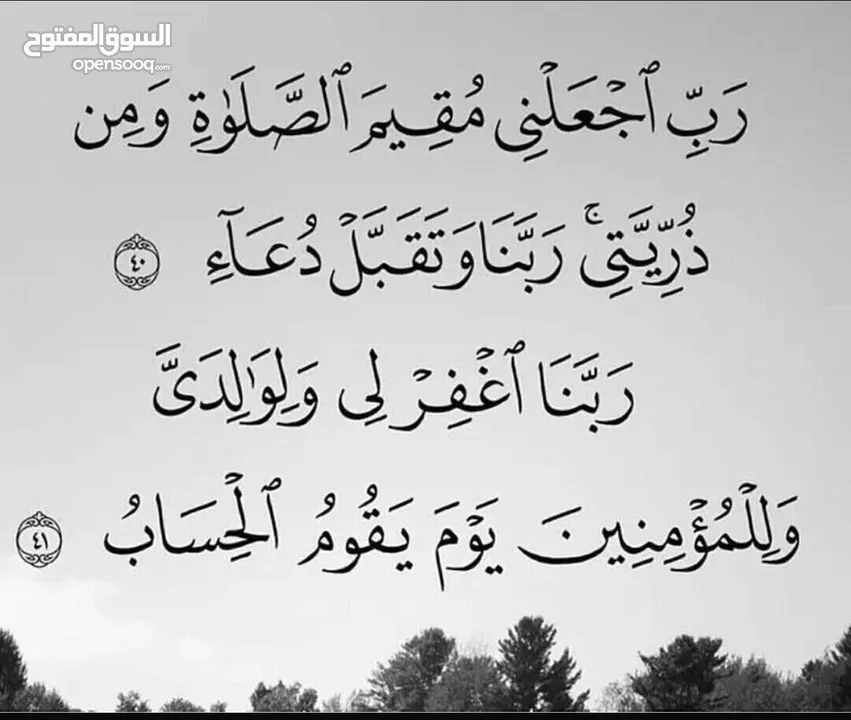 السوق المفتوح
opensooq.com
رَبِّ ٱجْعَلْنِى مُقِيمَ ٱلصَّلَوٰةِ وَمِن
ذُرِّيَّتِى ۚ رَبَّنَا وَتَقَبَّلْ دُعَآءِ ٤٠
رَبَّنَا ٱغْفِرْ لِى وَلِوَٰلِدَىَّ
وَلِلْمُؤْمِنِينَ يَوْمَ يَقُومُ ٱلْحِسَابُ ٤١